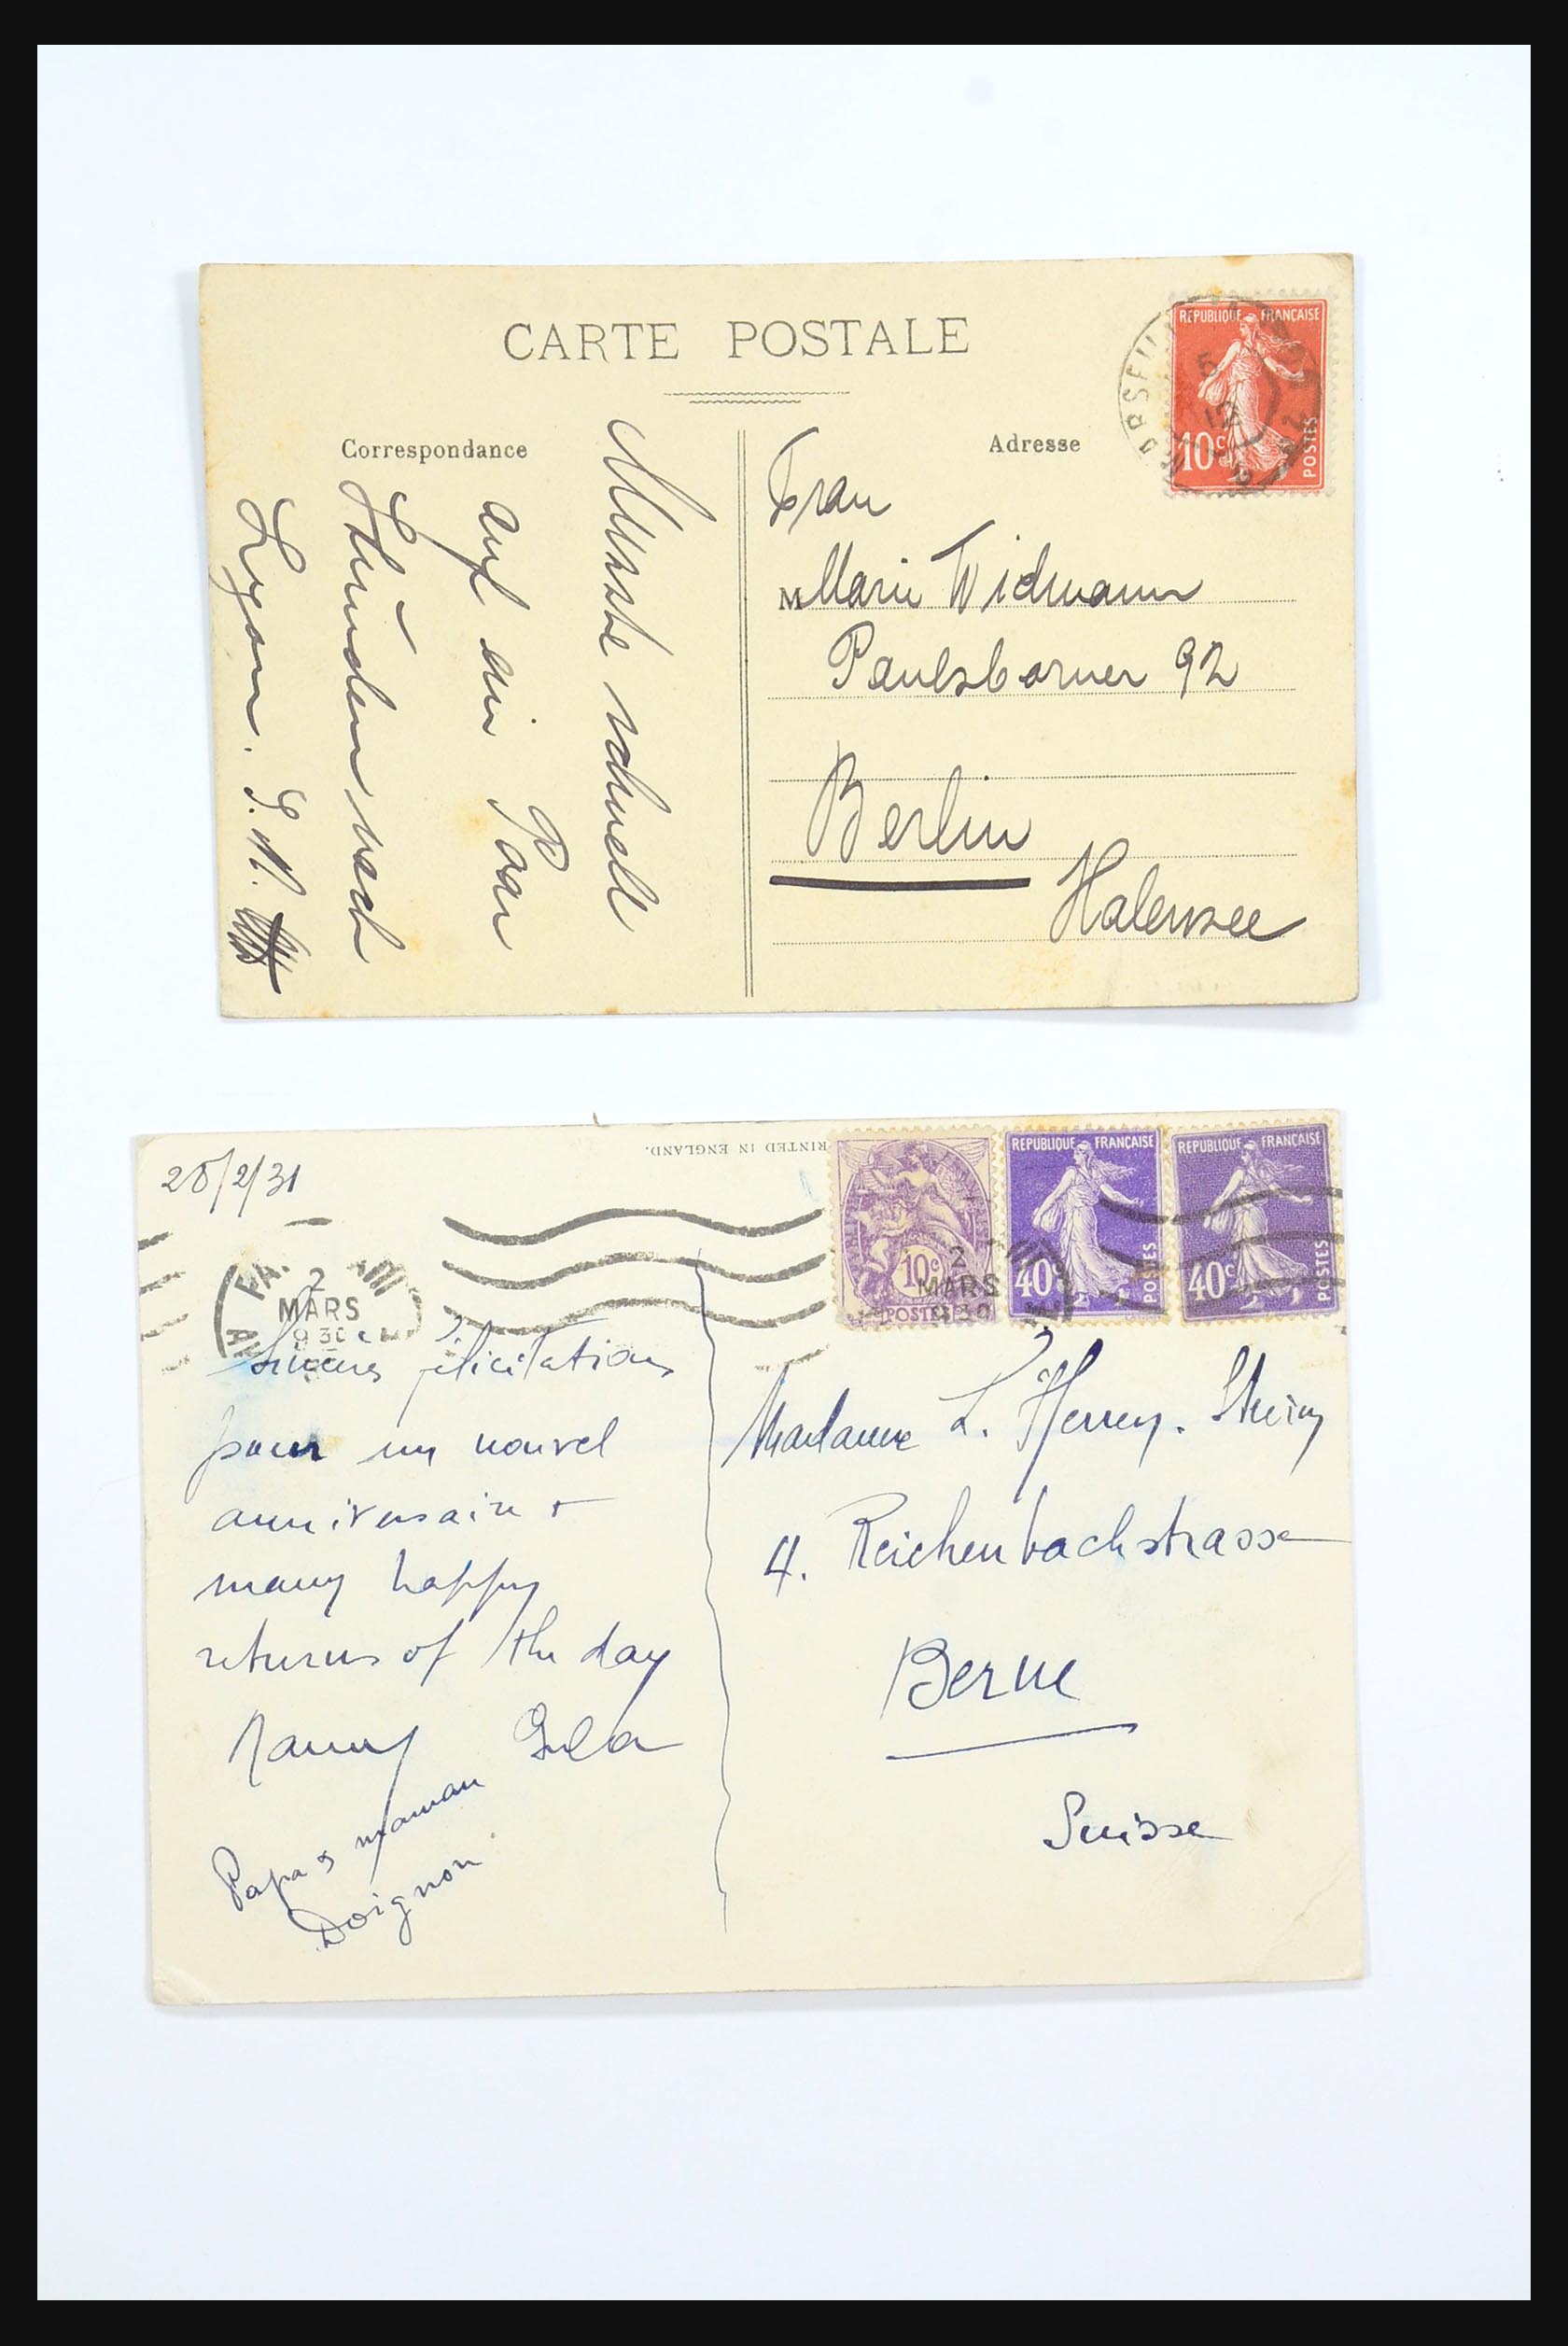 CARTE POSTALE
Correspondance
Adresse
REPUBLIQUE FRANÇAISE
10c
POSTES
Musste schnell
auf ein Paar
Stunden nach
Lyon.
Frau
M Marie Widmann
Paulsborner 92
Berlin
Halensee
PRINTED IN ENGLAND.
28/2/31
2
MARS
930
10c
POSTES
2
MARS
930
REPUBLIQUE FRANÇAISE
40c
POSTES
REPUBLIQUE FRANÇAISE
40c
POSTES
Sincères félicitations
pour un nouvel
anniversaire +
many happy
returns of the day
Papa & maman
Doignon
Madame L.
4. Reichenbachstrasse
Berne
Suisse